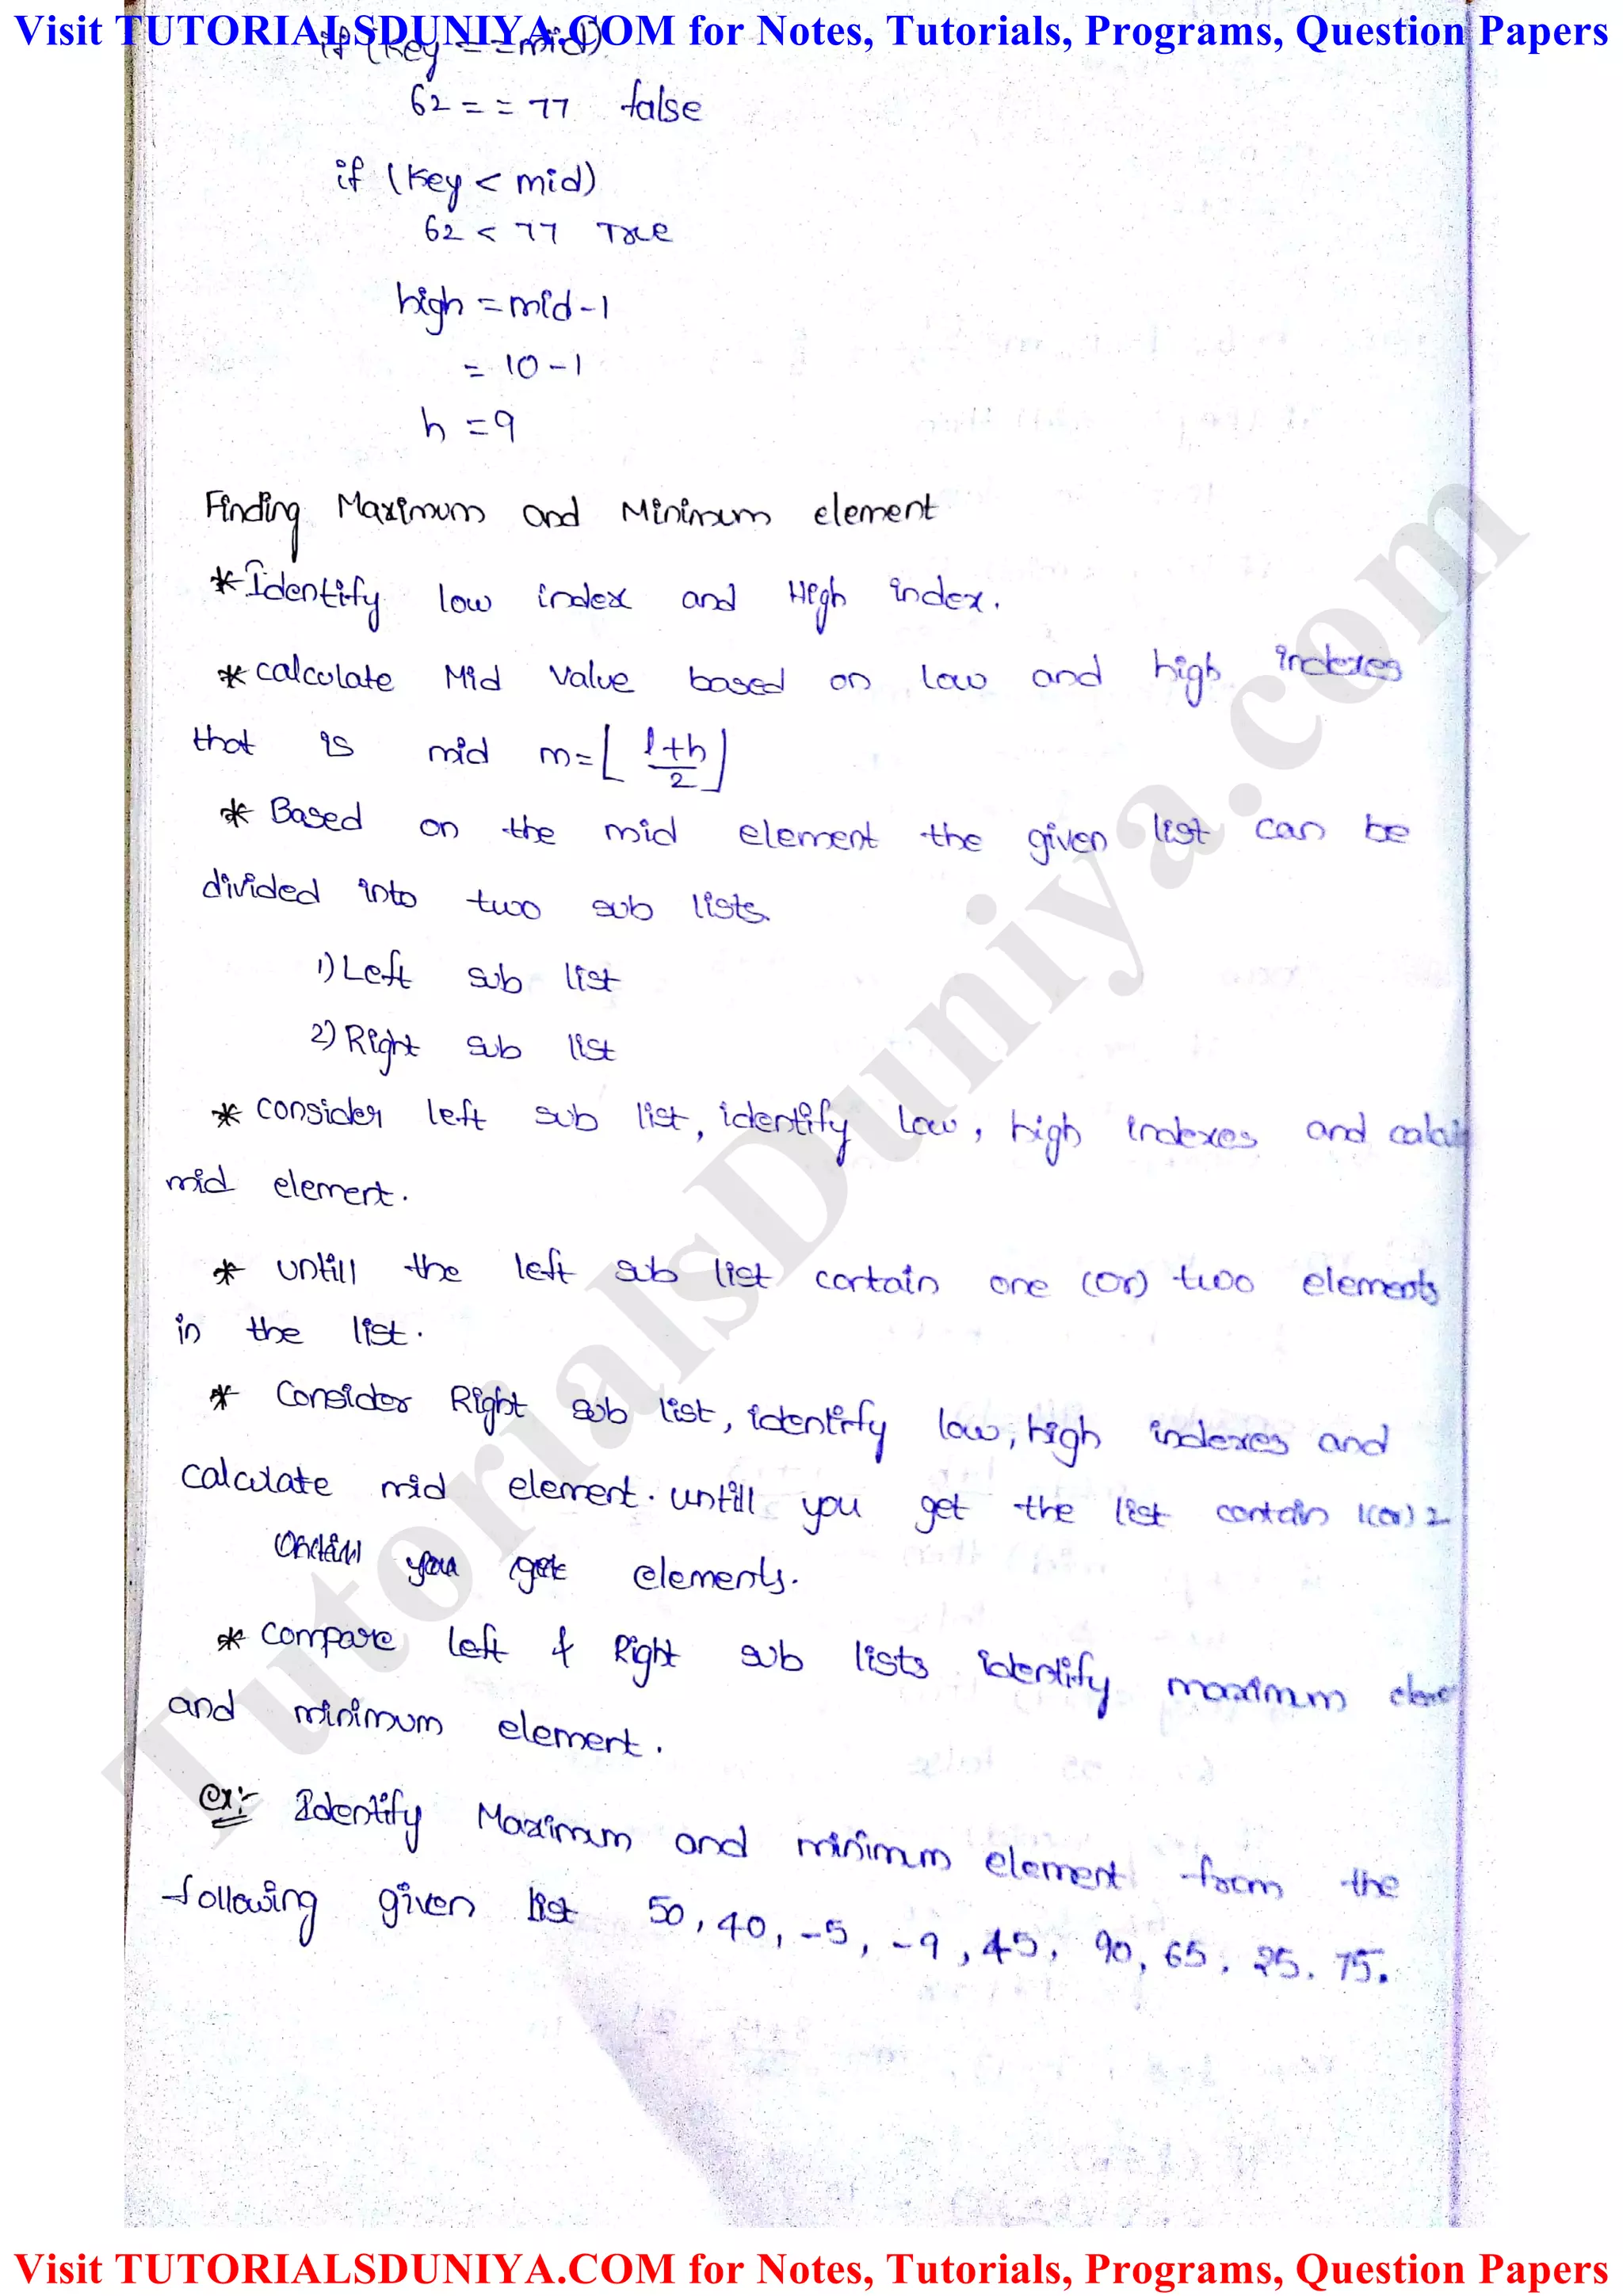 Visit TUTORIALSDUNIYA.COM for Notes, Tutorials, Programs, Question Papers
if (key = = mid)
62 = = 77 false
if (key < mid)
62 < 77 True
high = mid-1
= 10-1
h = 9
Finding Maximum and Minimum element
* Identify low index and High index.
* calculate Mid value based on low and high indexes
that is mid m = ⌊ l+h / 2 ⌋
* Based on the mid element the given list can be
divided into two sub lists.
1) Left sub list
2) Right sub list
* consider left sub list, identify low, high indexes and
mid element.
* untill the left sub list contain one (or) two elements
in the list.
* Consider Right sub list, identify low, high indexes and
calculate mid element. untill you get the list contain 1(or) 2
you get elements.
* compare left & Right sub lists identify maximum
and minimum element.
ex:- Identify Maximum and minimum element from the
following given list 50, 40, -5, -9, 45, 90, 65, 25, 75.
TutorialsDuniya.com
Visit TUTORIALSDUNIYA.COM for Notes, Tutorials, Programs, Question Papers